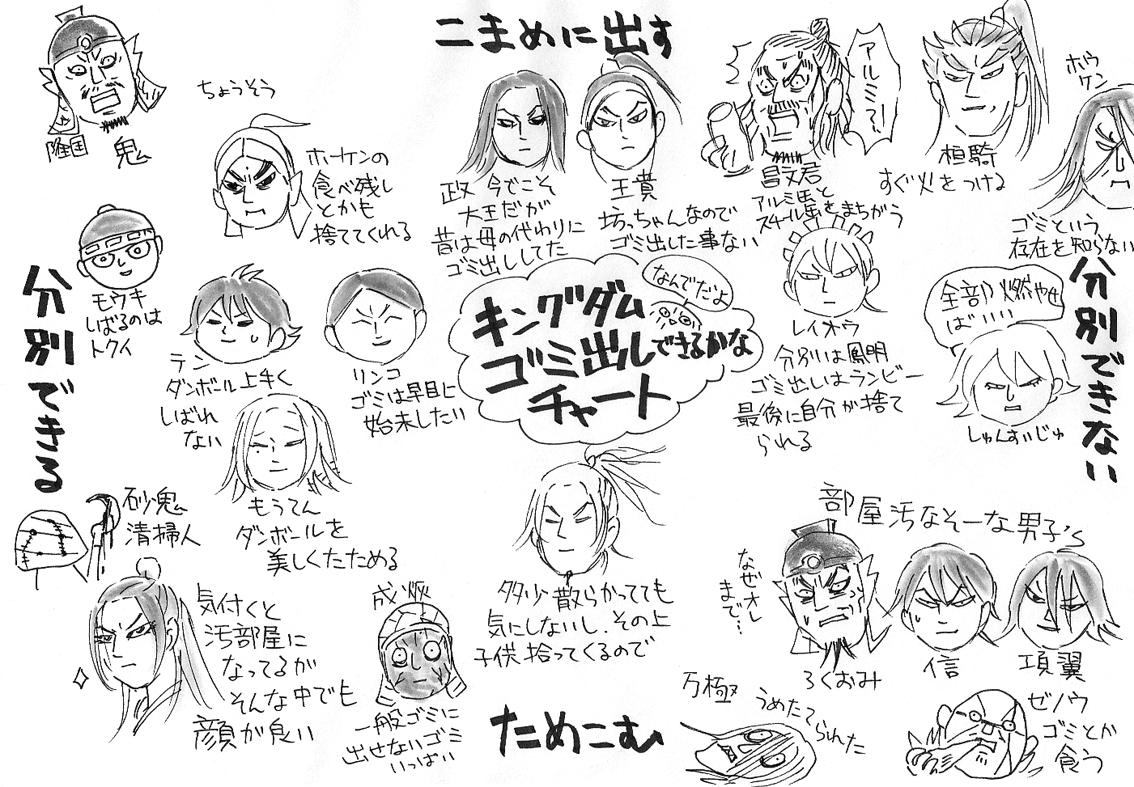 こまめに出す
隆国
鬼
ちょうそう
ホーケンの
食べ残し
とかも
捨ててくれる
政 今でこそ
大王だが
昔は母の代わりに
ゴミ出ししてた
王賁
坊っちゃんなので
ゴミ出した事ない
アルミ〜?
昌文君
アルミ馬と
スチール馬をまちがう
桓騎
すぐ火をつける
ホウ
ケン
ゴミという
存在を知らない
分別できる
モウキ
しばるのは
トクイ
テン
ダンボール上手く
しばれ
ない
リンコ
ゴミは早目に
始末したい
なんでだよ
キングダム
ゴミ出しできるかな
チャート
レイオウ
分別は鳳明
ゴミ出しはランビー
最後に自分が捨て
られる
全部燃やせ
ばいい
しゅんすいじゅ
分別できない
もうてん
ダンボールを
美しくたためる
砂鬼
清掃人
気付くと
汚部屋に
なってるが
そんな中でも
顔が良い
成恢
一般ゴミに
出せないゴミ
いっぱい
多少散らかってても
気にしないし、その上
子供拾ってくるので
ためこむ
部屋汚なそーな男子's
なぜオレ
まで…
ろくおみ
信
項翼
万極
うめたてられた
ゼノウ
ゴミとか
食う